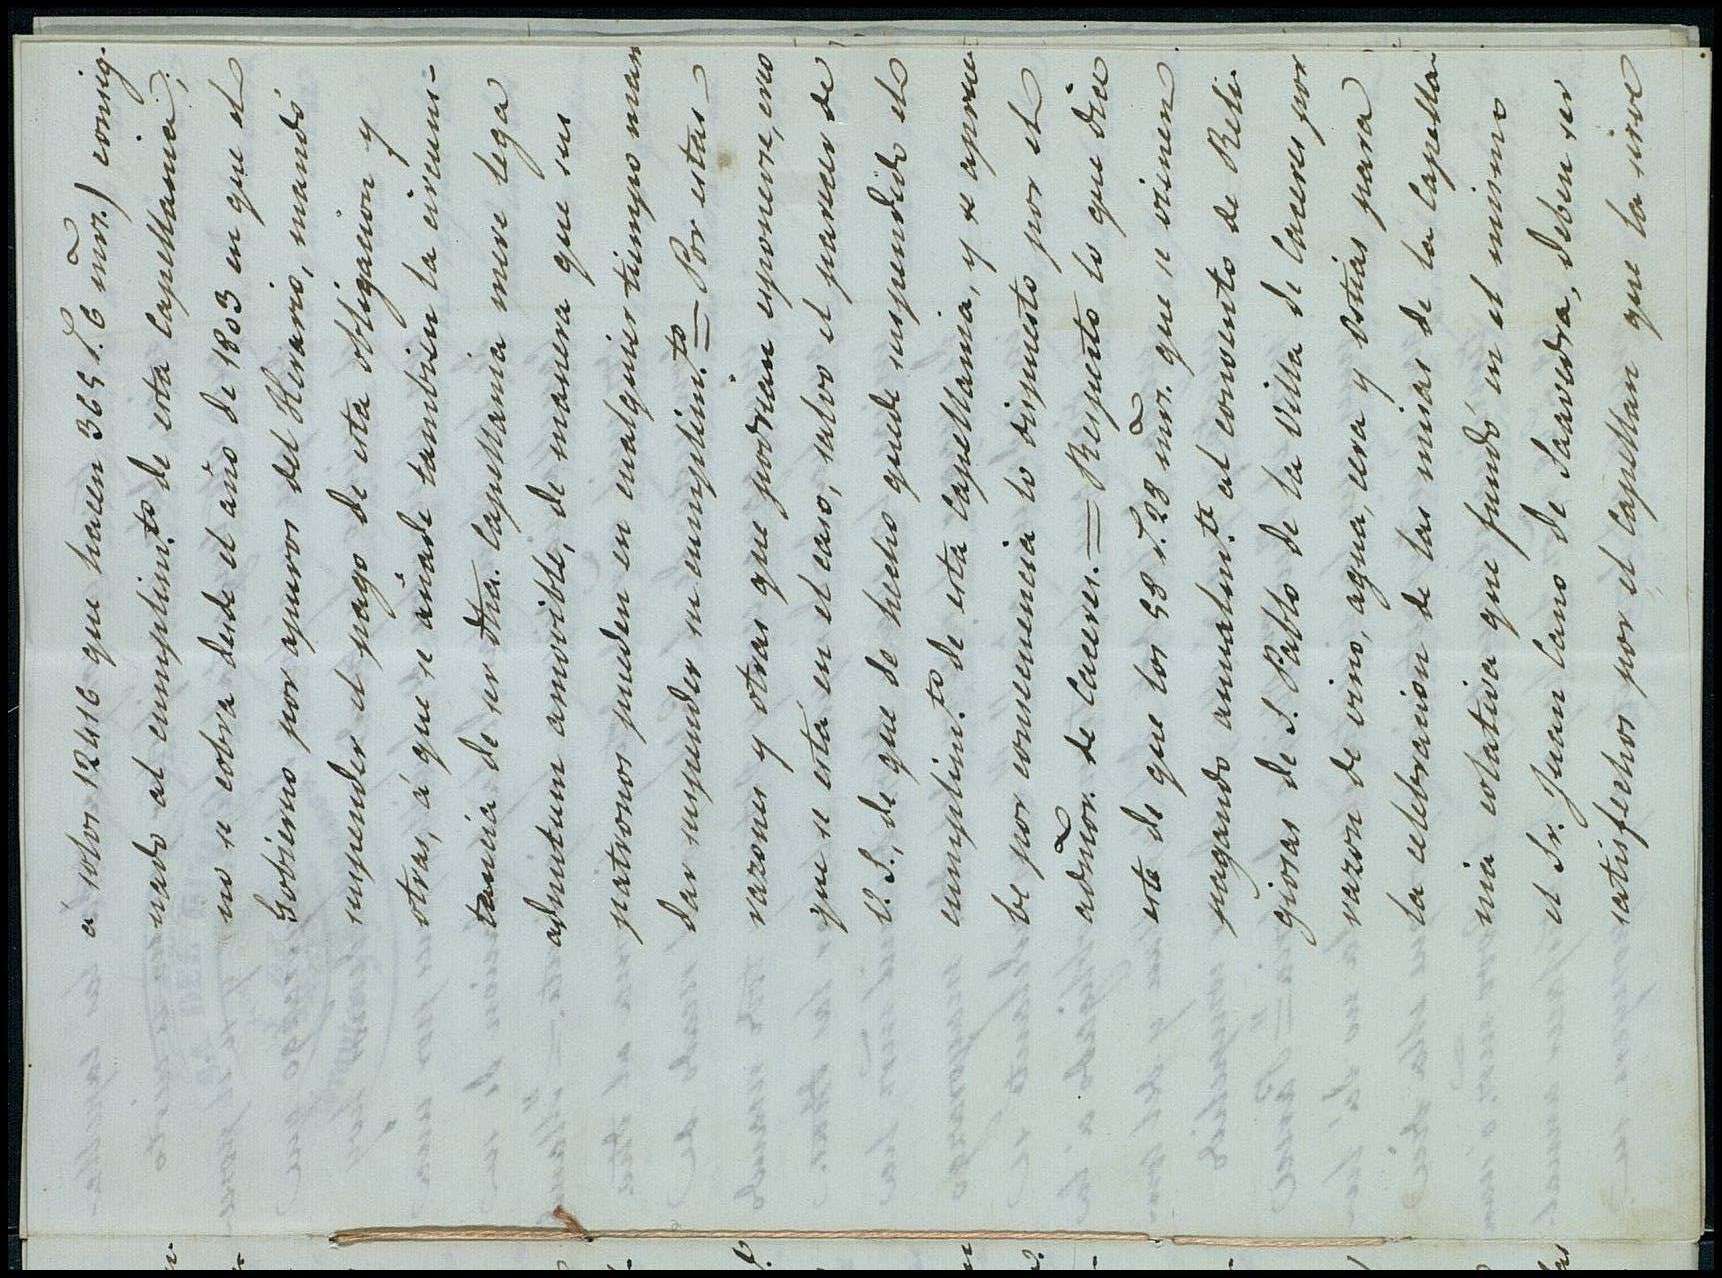 a 10tos 12416 que hacen 365 r.s 6 mrs.) consig-
nado al cumplim.to de esta capellania;
no se cobra desde el año de 1803 en que el
Gobierno por apuros del Herario, mandó
suspender el pago de esta obligacion y
otras, á que se añade tambien la circuns-
tancia de ser dtra. Capellania mere lega
adnutum amovible, de manera que sus
patronos pueden en cualquier tiempo man
dar suspender su cumplim.to = Por estas
razones y otras que podrian esponerse, creo
que se está en el caso, salvo el parecer de
V. S., de que de hecho quede suspendido el
cumplim.to de esta capellania, y se aprue-
be por consecuencia lo dispuesto por el
admor. de Caceres. = Respecto lo que dice
este de que los 58 r.s 28 mrs. que se vienen
pagando anualm.te al convento de Reli-
giosas de S. Pablo de la Villa de Caceres por
razon de vino, agua, cera y ostias para
la celebracion de las misas de la Capella-
nia colativa que fundó en el mismo
el Sr. Juan Cano de Saavedra, deben ser
satisfechos por el capellan que la sirve